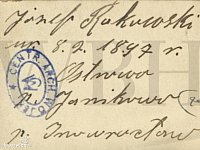 Józef Rakowski
ur. 8.2.1897 r.
Ostrowo
p. Janikowo
p. Inowrocław
CENTR. ARCH. WOJSK.